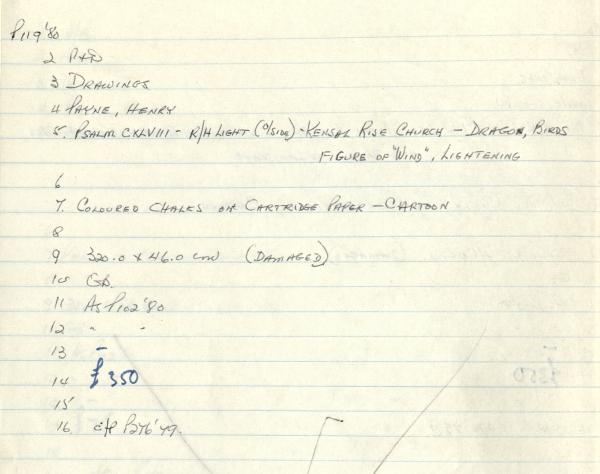 P119'80
2 P+D
3 DRAWINGS
4 PAYNE, HENRY
5. PSALM CXLVIII - R/H LIGHT (O/SIDE) - KENSAL RISE CHURCH - DRAGON, BIRDS
FIGURE OF "WIND", LIGHTENING
6
7. COLOURED CHALKS ON CARTRIDGE PAPER - CARTOON
8
9 320.0 x 46.0 cm (DAMAGED)
10 Gd.
11 As P102'80
12 " "
13 -
14 £350
15
16. c/f P276'79.